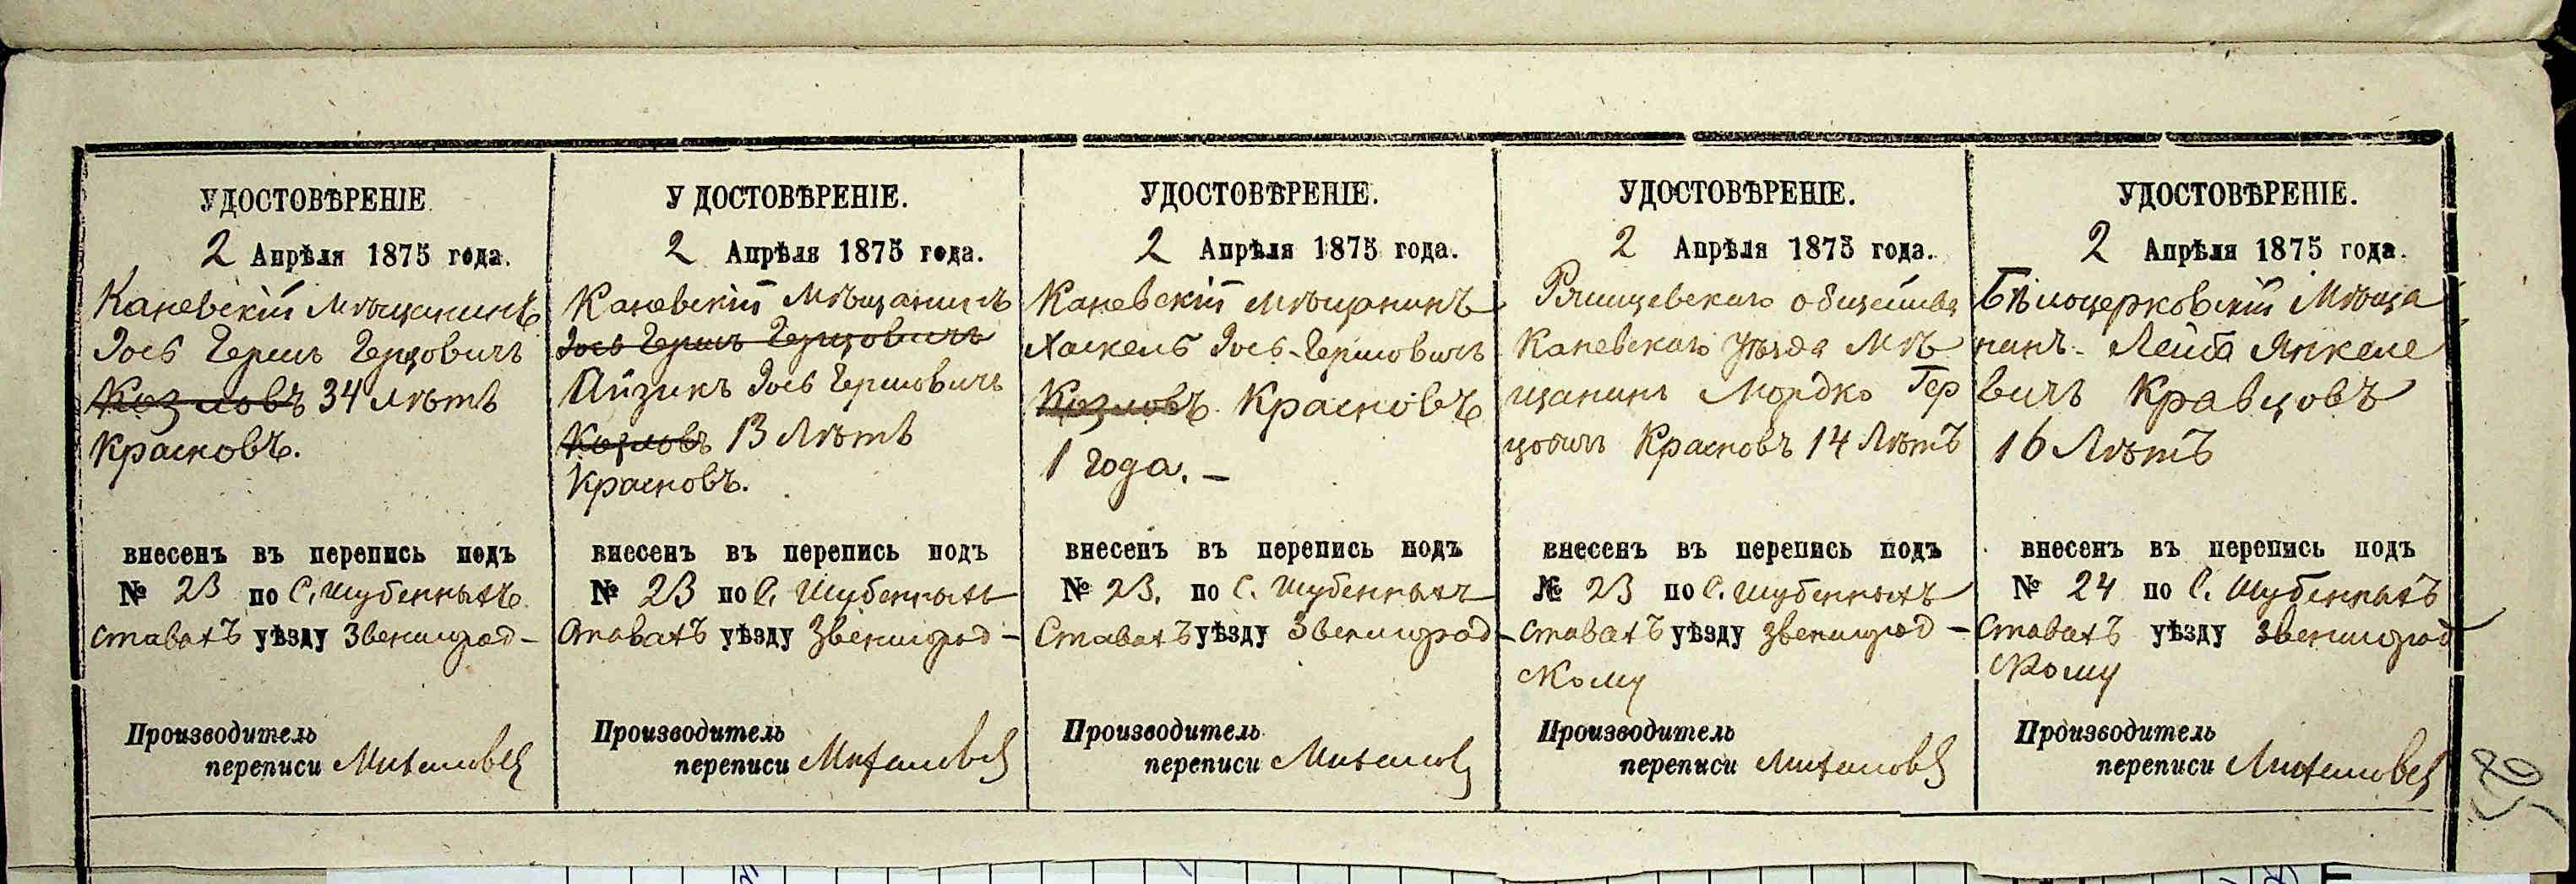 УДОСТОВѢРЕНІЕ
2 Апрѣля 1875 года.
Каневскій Мѣщанинъ
Іось Гершъ Герцовичъ
Козловъ 34 лѣтъ
Красновъ.
внесенъ въ перепись подъ
№ 23 по С. Шубенныхъ
Ставахъ уѣзду Звенигрод-
Производитель
переписи
УДОСТОВѢРЕНІЕ.
2 Апрѣля 1875 года.
Каневскій Мѣщанинъ
Іось Гершъ Герцовичъ
Айзикъ Іось Гершовичъ
Козловъ 13 Лѣтъ
Красновъ.
внесенъ въ перепись подъ
№ 23 по С. Шубенныхъ
Ставахъ уѣзду Звенигрод-
Производитель
переписи
УДОСТОВѢРЕНІЕ.
2 Апрѣля 1875 года.
Каневскій мѣщанинъ
Хаскель Іось-Гершовичъ
Козловъ Красновъ
1 года. -
внесенъ въ перепись подъ
№ 23. по С. Шубенныхъ
Ставахъ уѣзду Звенигрод-
Производитель
переписи
УДОСТОВѢРЕНІЕ.
2 Апрѣля 1875 года.
Ржищевскаго общества
Каневскаго Уѣзда Мѣ
щанинъ Мордко Гер
цовичъ Красновъ 14 Лѣтъ
внесенъ въ перепись подъ
№ 23 по С. Шубенныхъ
Ставахъ уѣзду Звенигрод-
скому
Производитель
переписи
УДОСТОВѢРЕНІЕ.
2 Апрѣля 1875 года.
Бѣлоцерковскій Мѣща
нинъ Лейба Янкеле
вичъ Кравцовъ
16 Лѣтъ
внесенъ въ перепись подъ
№ 24 по С. Шубенныхъ
Ставахъ уѣзду Звенигрод
скому
Производитель
переписи